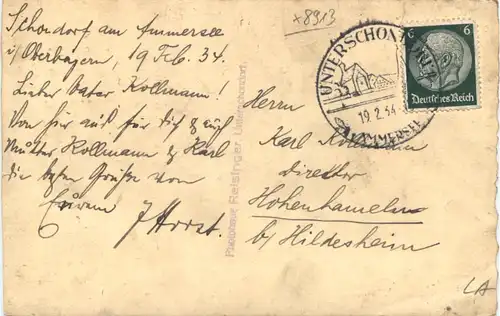 +8913
Schondorf am Ammersee
i/Oberbayern, 19 Feb. 34.
Lieber Vater Kollmann!
Von hier aus für dich & auch
Mutter Kollmann & Karl
die besten Grüße von
Eurem Horst.
Photohaus Reisinger, Unterschondorf.
UNTERSCHONDORF
19.2.34
AMMERSEE
6 6
Deutsches Reich
Herrn
Karl Kollmann
Direktor
Hohenhameln
b/ Hildesheim
LA